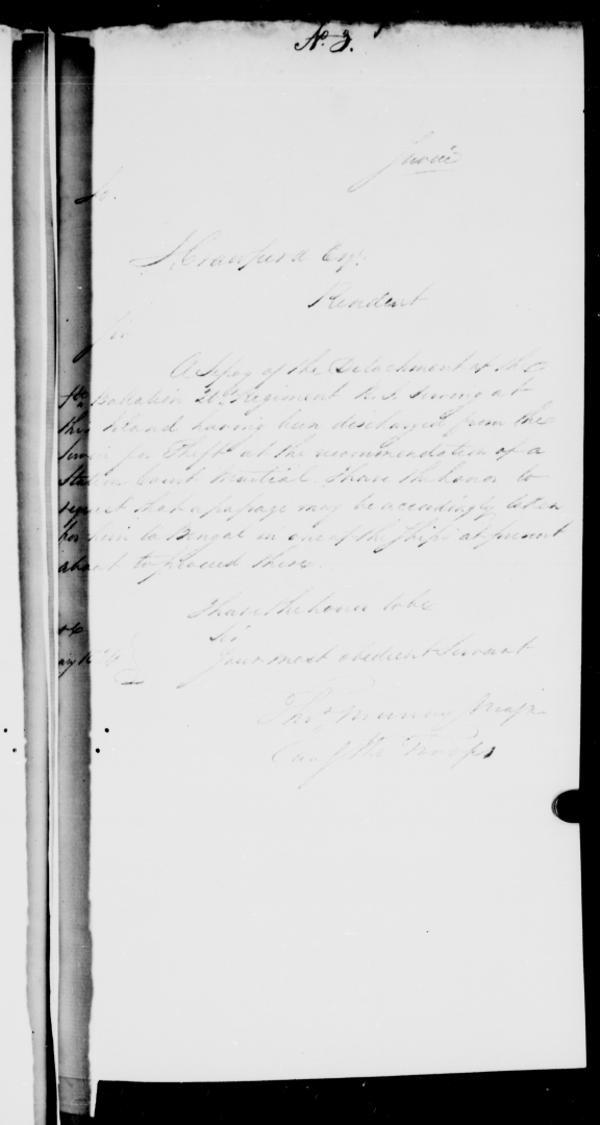 No. 3.
Service
To.
J. Crawfurd Esqr.
Resident
Sir
A Sepoy of the Detachment of the
Battalion 20th Regiment N. I. serving at
this Island having been discharged from the
Service for Theft at the recommendation of a
Station Court Martial I have the honor to
request that a passage may be accordingly taken
for him to Bengal in one of the Ships at present
about to proceed there.
I have the honor to be
Sir
Your most obedient Servant
Thos. Murray Major
Comg the Troops